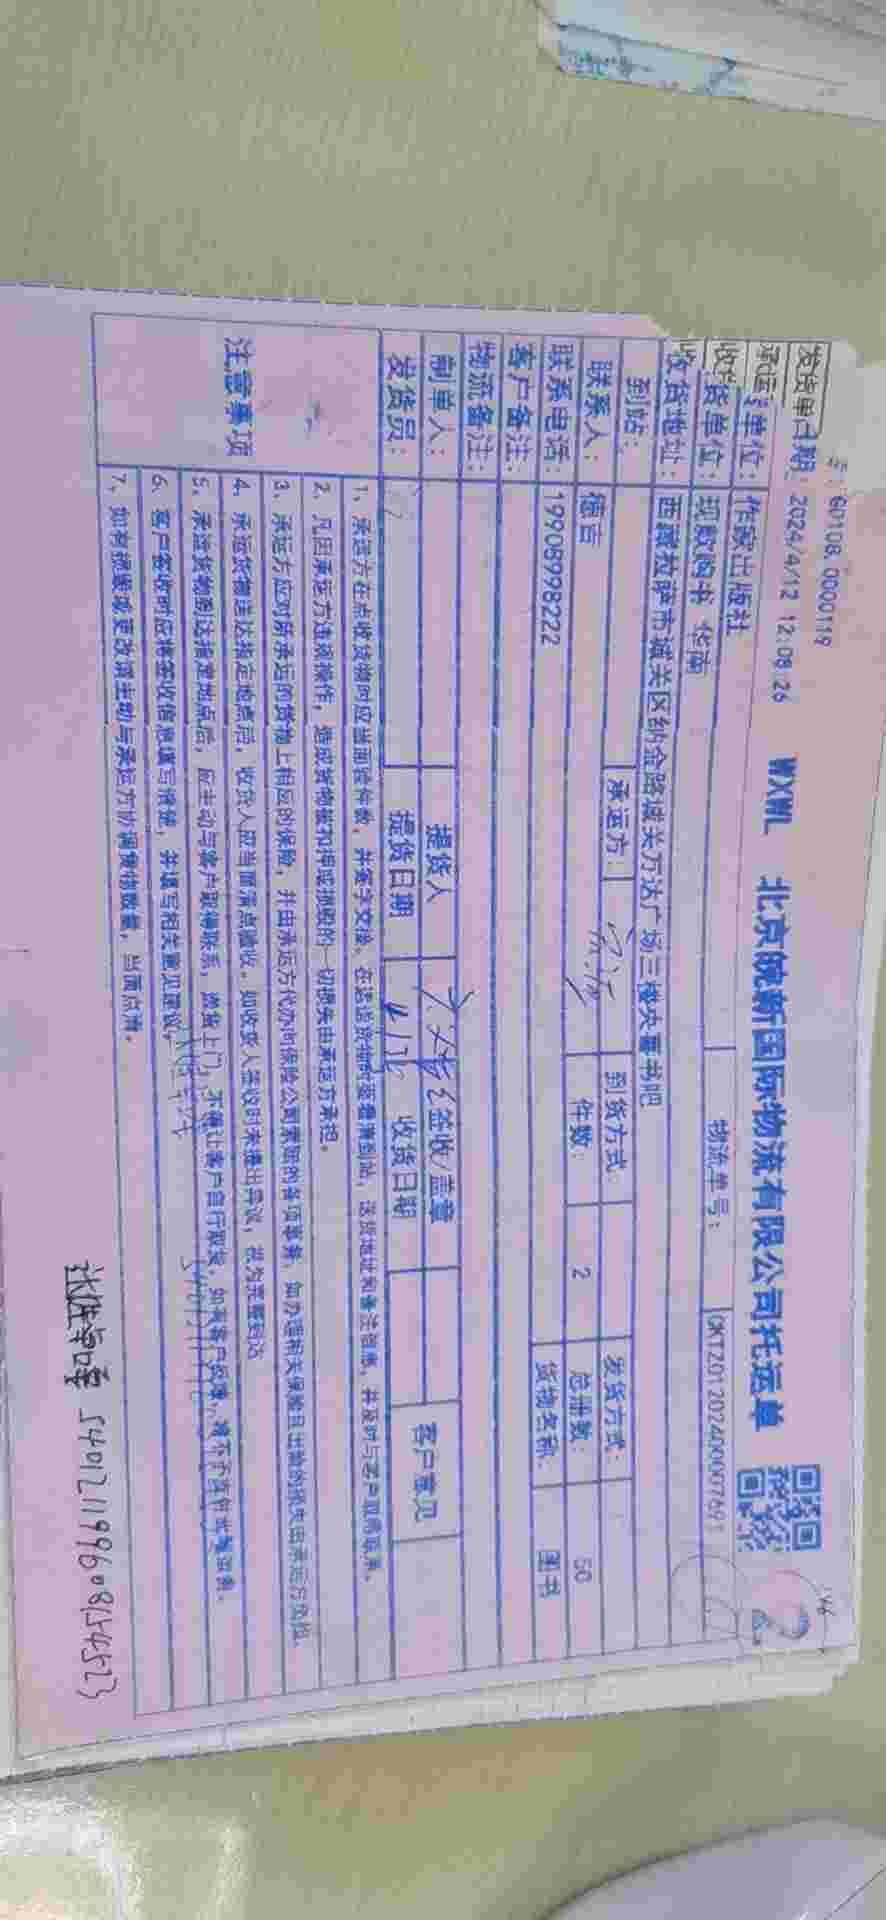 60108.0000119
发货单日期：2024/4/12 12:08:26 WXWL 北京皖新国际物流有限公司托运单
承运单位：作家出版社
收货单位：现款购书 华南 物流单号： CKT201202400007691
收货地址：西藏拉萨市城关区纳金路城关万达广场三楼央畺书吧
到站： 承运方： 到货方式： 发货方式：
联系人：德吉 件数： 2 总册数： 50
联系电话：19908998222 货物名称： 图书
客户备注：
物流备注：
制单人： 提货人 签收/盖章 客户意见
发货员： 提货日期 收货日期
注意事项
1、承运方在点收货物时应当面验件数，并签字交接。在送货时要看清到站，送货地址和备注信息，并及时与客户取得联系。
2、凡因承运方违规操作，造成货物被扣押或损毁的一切损失由承运方承担。
3、承运方应对所承运的货物上相应的保险，并由承运方代办向保险公司索赔的各项事宜，如办理相关保险且出险的损失由承运方负担。
4、承运货物送达指定地点后，收货人应当面清点验收，如收货人签收时未提出异议，视为完整到达
5、承运货物到达指定地点后，应主动与客户取得联系，送货上门，不得让客户自行取货，如有客户反馈，
6、客户签收时应将签收信息填写清楚，并填写相关意见建议。
7、如有损坏或更改请主动与承运方协调货物数量，当面点清。
540121199608154523